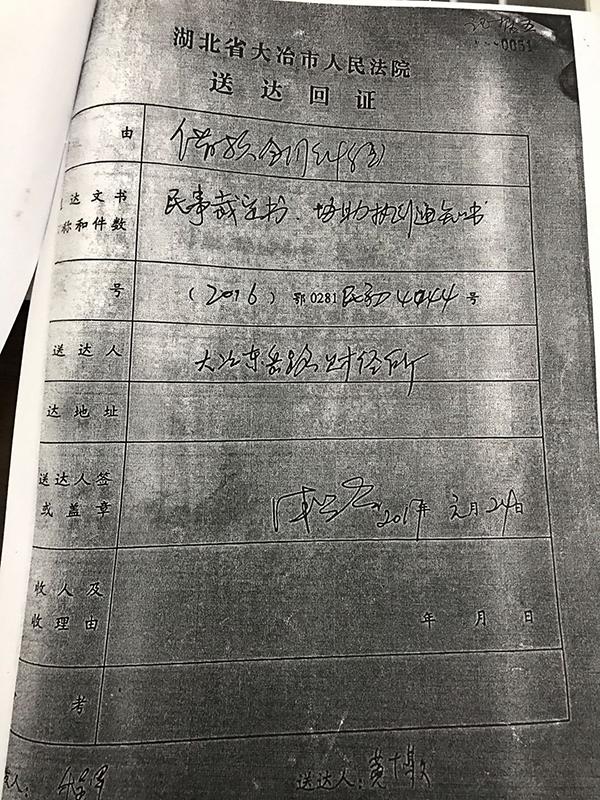 0051
湖北省大冶市人民法院
送达回证
由
借款合同纠纷
达文书
称和件数
民事裁定书、协助执行通知书
号
(2016)鄂0281民初4044号
送达人
大冶东岳路财经所
达地址
送达人签
或盖章
2017年元月24日
收人及
收理由
年 月 日
考
送达人:黄